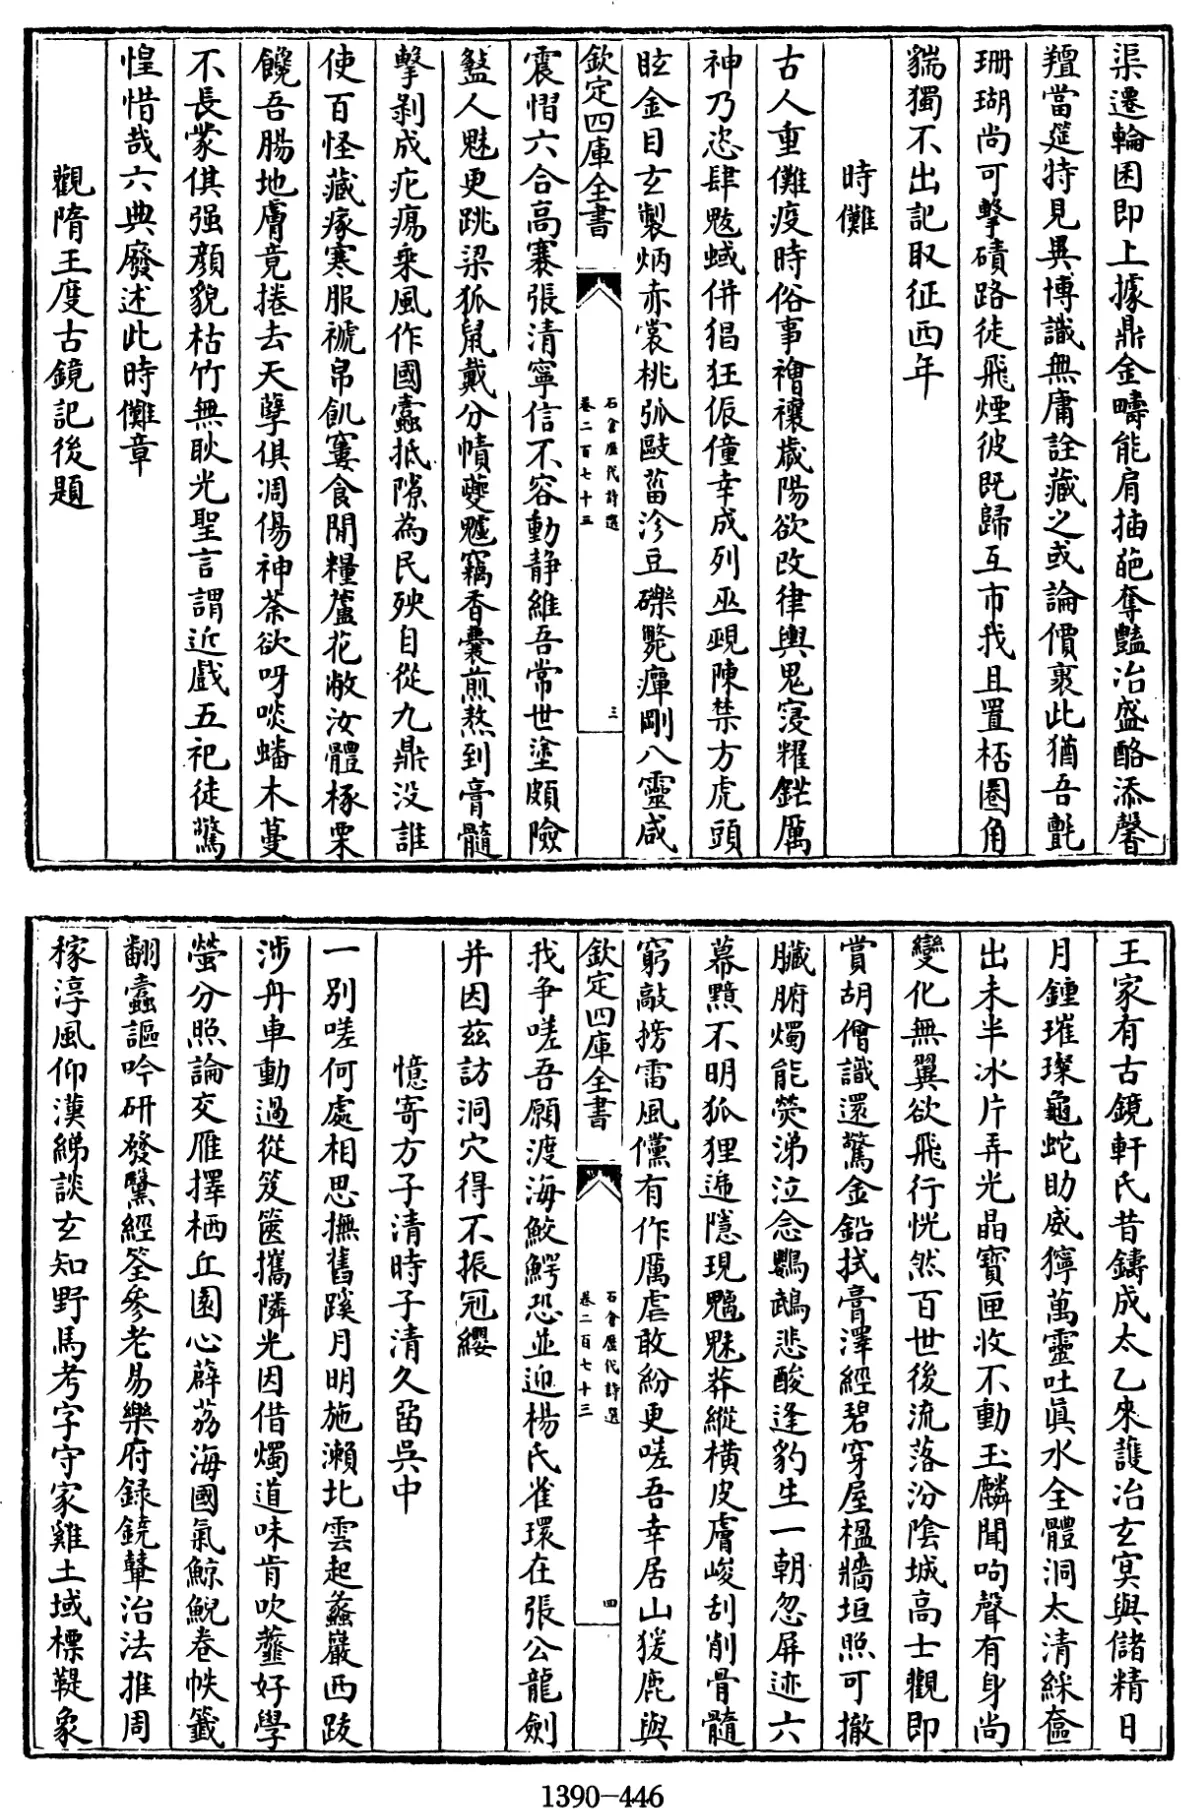 渠遷輪囷即上據鼎金疇能肩插葩奪豔冶盛酪添馨
羶當筵特見異博識無庸詮藏之或論價裹此猶吾氈
珊瑚尚可擊磧路徒飛煙彼既歸互市我且置桮圈角
貒獨不出記取征西年
時儺
古人重儺疫時俗事禬禳歲陽欲改律輿鬼寖耀鋩厲
神乃恣肆魃蜮併猖狂侲僮幸成列巫覡陳禁方虎頭
眩金目玄製炳赤裳桃弧敺菑沴豆礫斃癉剛八靈咸
欽定四庫全書
石倉歷代詩選
卷二百七十三
三
震慴六合高褰張清寧信不容動靜維吾常世塗頗險
盭人魅更跳梁狐鼠戴分幘夔魖竊香囊煎熬到膏髓
擊剥成疕瘍乘風作國蠹抵隙為民殃自從九鼎没誰
使百怪藏瘃寒服褫帛飢窶食閒糧蘆花敝汝體椓栗
饞吾腸地膚竟捲去天孽俱凋傷神荼欲呀啖蟠木蔓
不長蒙倛强顏貌枯竹無耿光聖言謂近戲五祀徒驚
惶惜哉六典廢述此時儺章
觀隋王度古鏡記後題
王家有古鏡軒氏昔鑄成太乙來護冶玄冥與儲精日
月鍾璀璨龜蛇助威獰萬靈吐眞水全體洞太清綵奩
出未半冰片弄光晶寶匣收不動玉麟聞吻聲有身尚
變化無翼欲飛行恍然百世後流落汾陰城高士觀即
賞胡僧識還驚金鉛拭膏澤經碧穿屋楹牆垣照可撤
臟腑燭能熒涕泣念鸚鵡悲酸逢豹生一朝忽屏迹六
幕黯不明狐狸遞隱現魑魅莽縱橫皮膚峻刮削骨髓
窮敲搒雷風儻有作厲虐敢紛更嗟吾幸居山猨鹿與
欽定四庫全書
石倉歷代詩選
卷二百七十三
四
我争嗟吾願渡海鮫鰐恐並迎楊氏雀環在張公龍劍
并因兹訪洞穴得不振冠纓
憶寄方子清時子清久畱吳中
一別嗟何處相思撫舊蹊月明施瀨北雲起蠡巖西跋
涉舟車動過從笈篋攜隣光因借燭道味肯吹虀好學
螢分照論交雁擇栖丘園心薜荔海國氣鯨鯢卷帙籤
翻蠹謳吟研發鷖經筌參老易樂府錄鐃鼙治法推周
稼淳風仰漢綈談玄知野馬考字守家雞土域標鞮象